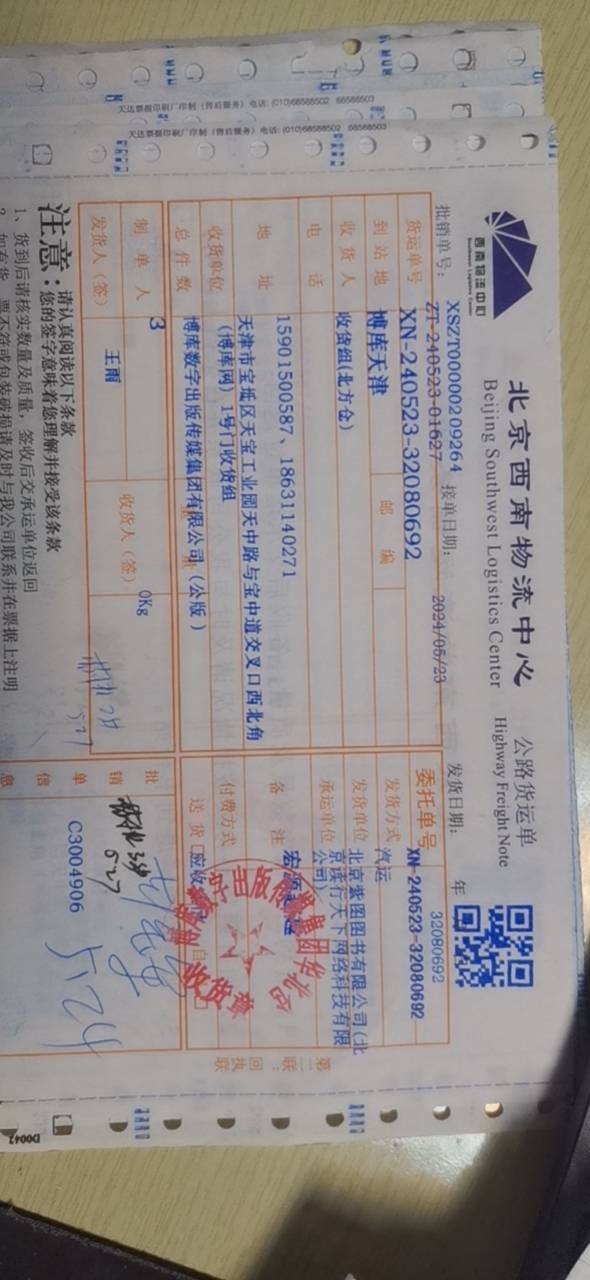 天达票据印刷厂印制 (售后服务) 电话: (010)68588502 68588503
天达票据印刷厂印制 (售后服务) 电话: (010)68588502 68588503
西南物流中心
Southwest Logistics Center
北京西南物流中心 公路货运单
Beijing Southwest Logistics Center Highway Freight Note
批销单号: XSZT00000209264 接单日期: 2024/05/23 发货日期: 年
ZT-240523-01627
32080692
货运单号 XN-240523-32080692 委托单号 XN-240523-32080692
到站地 博库天津 邮编 发货方式 汽运
收货人 收货组(北方仓) 发货单位 北京紫图图书有限公司(北京读行天下网络科技有限公司)
电话 15901500587、18631140271 承运单位
地址 天津市宝坻区天宝工业园天中路与宝中道交叉口西北角(博库网) 1号门收货组 备注
收货单位 博库数字出版传媒集团有限公司(公版) 付费方式
总件数 3 0Kg 送货 应收
制单人 王雨 收货人(签)
发货人(签)
批销单信息 C3004906
5.27
5.27
5.24
收货章
第二联:回执联
注意: 请认真阅读以下条款
您的签字意味着您理解并接受该条款
1、货到后请核实数量及质量, 签收后交承运单位返回
2、如有货、票不符或包装破损请及时与我公司联系并在票据上注明
D0042